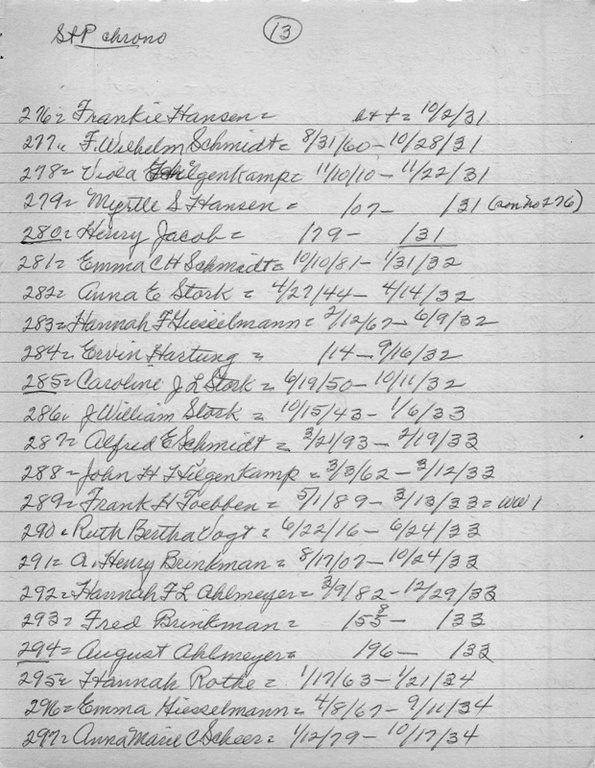 St P chrono 13
276= Frankie Hansen = b++= 10/2/31
277= F. Wilhelm Schmidt= 8/31/60- 10/28/31
278= Viola Hilgenkamp= 11/10/10- 11/22/31
279= Myrtle S Hansen = /07- /31 (son no 276)
280= Henry Jacob = /79- /31
281= Emma C H Schmidt= 10/10/81- 1/31/32
282= Anna E Stork = 4/27/44- 4/14/32
283= Hannah F Hiesselmann= 2/12/67- 6/9/32
284= Ervin Hartung = /14- 9/16/32
285= Caroline J L Stork = 6/19/50- 10/11/32
286= J William Stork = 10/15/43- 1/6/33
287= Alfred E Schmidt = 3/21/93- 2/19/33
288= John H Hilgenkamp = 3/3/62- 3/12/33
289= Frank H Toebben= 5/1/89- 3/13/33= WW 1
290= Ruth Bertha Vogt = 6/22/16- 6/24/33
291= A. Henry Brinkman= 8/17/07- 10/24/33
292= Hannah F L Ahlmeyer= 3/9/82- 12/29/33
293= Fred Brinkman= /58- /33
294= August Ahlmeyer= /96- /33
295= Hannah Rothe = 1/17/63- 1/21/34
296= Emma Hiesselmann= 4/8/67- 9/11/34
297= Anna Marie C Scheer= 1/12/79- 10/17/34